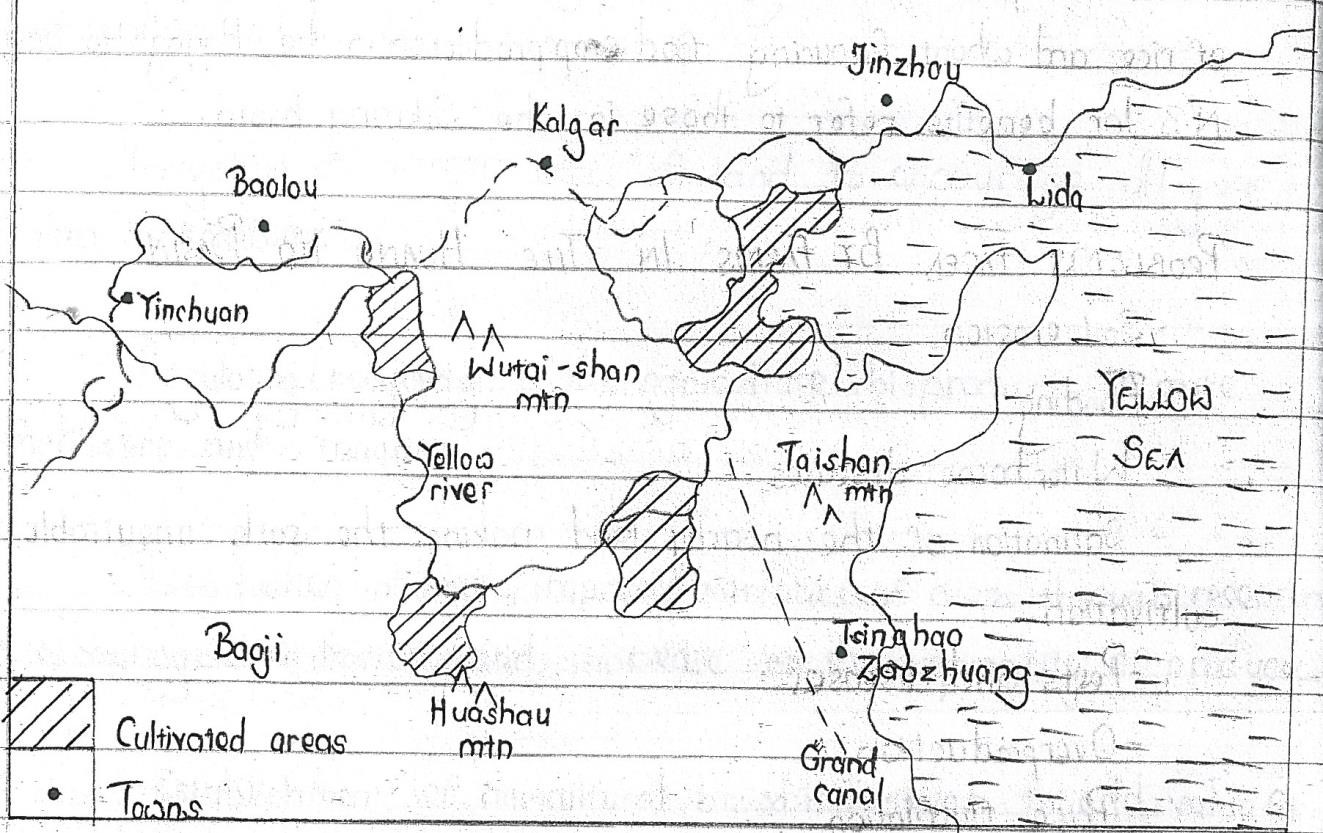 Jinzhou
Kalgar
Baolou
Lida
Yinchuan
Wutai-shan
mtn
YELLOW
SEA
Yellow
river
Taishan
mtn
Baoji
Tsinghao
Zaozhuang
Huashau
mtn
Cultivated areas
Grand
canal
Towns